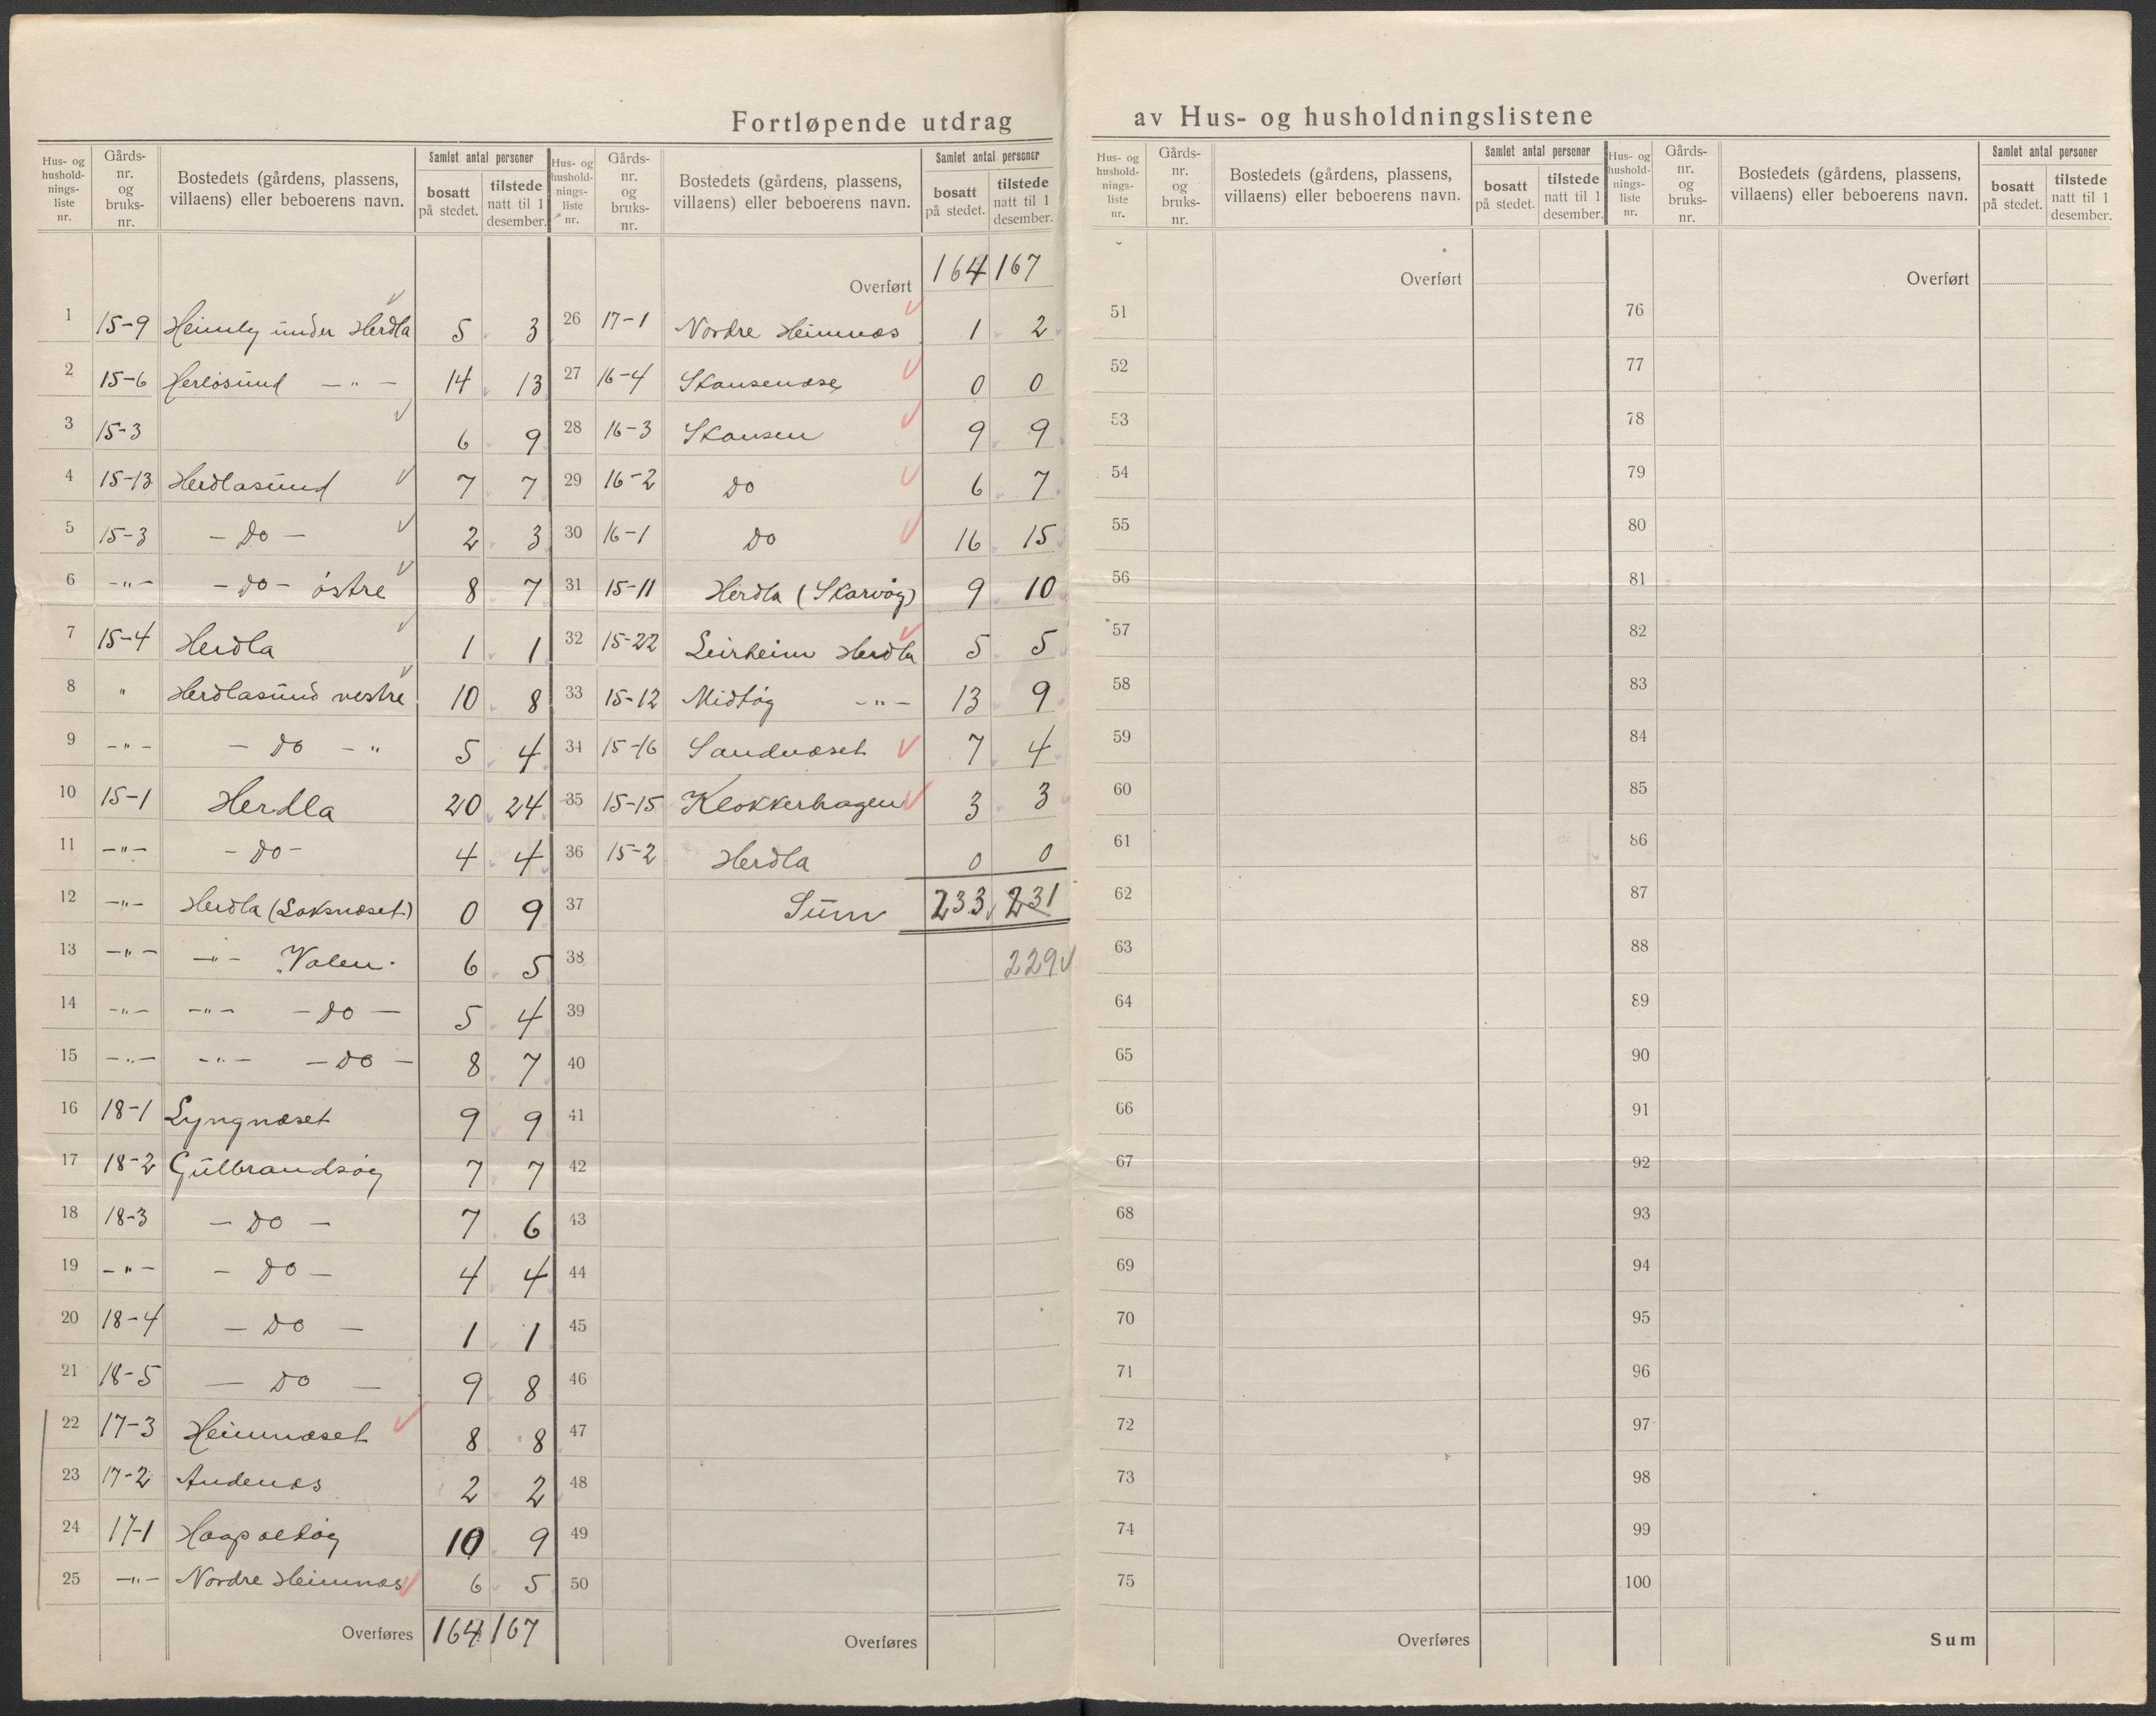 Fortløpende utdrag av Hus- og husholdningslistene
Hus- og husholdningsliste nr. | Gårds-nr. og bruks-nr. | Bostedets (gårdens, plassens, villaens) eller beboerens navn. | Samlet antal personer | bosatt på stedet. | tilstede natt til 1 desember.
1 15-9 Heimly under Herdla 5 3
2 15-6 Herløsund — " — 14 13
3 15-3 6 9
4 15-13 Herdlasund 7 7
5 15-3 — Do — 2 3
6 — " — — Do — östre 8 7
7 15-4 Herdla 1 1
8 " Herdlasund vestre 10 8
9 — " — — Do — " 5 4
10 15-1 Herdla 20 24
11 — " — — Do — 4 4
12 — " — Herdla (Laksnæset) 0 9
13 — " — — " — "Valen" 6 5
14 — " — — " — — Do — 5 4
15 — " — — " — — Do — 8 7
16 18-1 Lyngnæset 9 9
17 18-2 Gulbrandsøy 7 7
18 18-3 — Do — 7 6
19 — " — — Do — 4 4
20 18-4 — Do — 1 1
21 18-5 — Do — 9 8
22 17-3 Heimnæset 8 8
23 17-2 Andenæs 2 2
24 17-1 10 9
25 — " — Nordre Heimnæs 6 5
Overføres 164 167
Hus- og husholdningsliste nr. | Gårds-nr. og bruks-nr. | Bostedets (gårdens, plassens, villaens) eller beboerens navn. | Samlet antal personer | bosatt på stedet. | tilstede natt til 1 desember.
Overført 164 167
26 17-1 Nordre Heimnæs 1 2
27 16-4 0 0
28 16-3 Skansen 9 9
29 16-2 Do 6 7
30 16-1 Do 16 15
31 15-11 Herdla (Skarvøy) 9 10
32 15-22 Leirheim Herdla 5 5
33 15-12 Midtøy — " — 13 9
34 15-16 Sandnæset 7 4
35 15-15 Klokkerhagen 3 3
36 15-2 Herdla 0 0
37 Sum 233 231
38 229
39
40
41
42
43
44
45
46
47
48
49
50
Overføres
Hus- og husholdningsliste nr. | Gårds-nr. og bruks-nr. | Bostedets (gårdens, plassens, villaens) eller beboerens navn. | Samlet antal personer | bosatt på stedet. | tilstede natt til 1 desember.
Overført
51
52
53
54
55
56
57
58
59
60
61
62
63
64
65
66
67
68
69
70
71
72
73
74
75
Overføres
Hus- og husholdningsliste nr. | Gårds-nr. og bruks-nr. | Bostedets (gårdens, plassens, villaens) eller beboerens navn. | Samlet antal personer | bosatt på stedet. | tilstede natt til 1 desember.
Overført
76
77
78
79
80
81
82
83
84
85
86
87
88
89
90
91
92
93
94
95
96
97
98
99
100
Sum